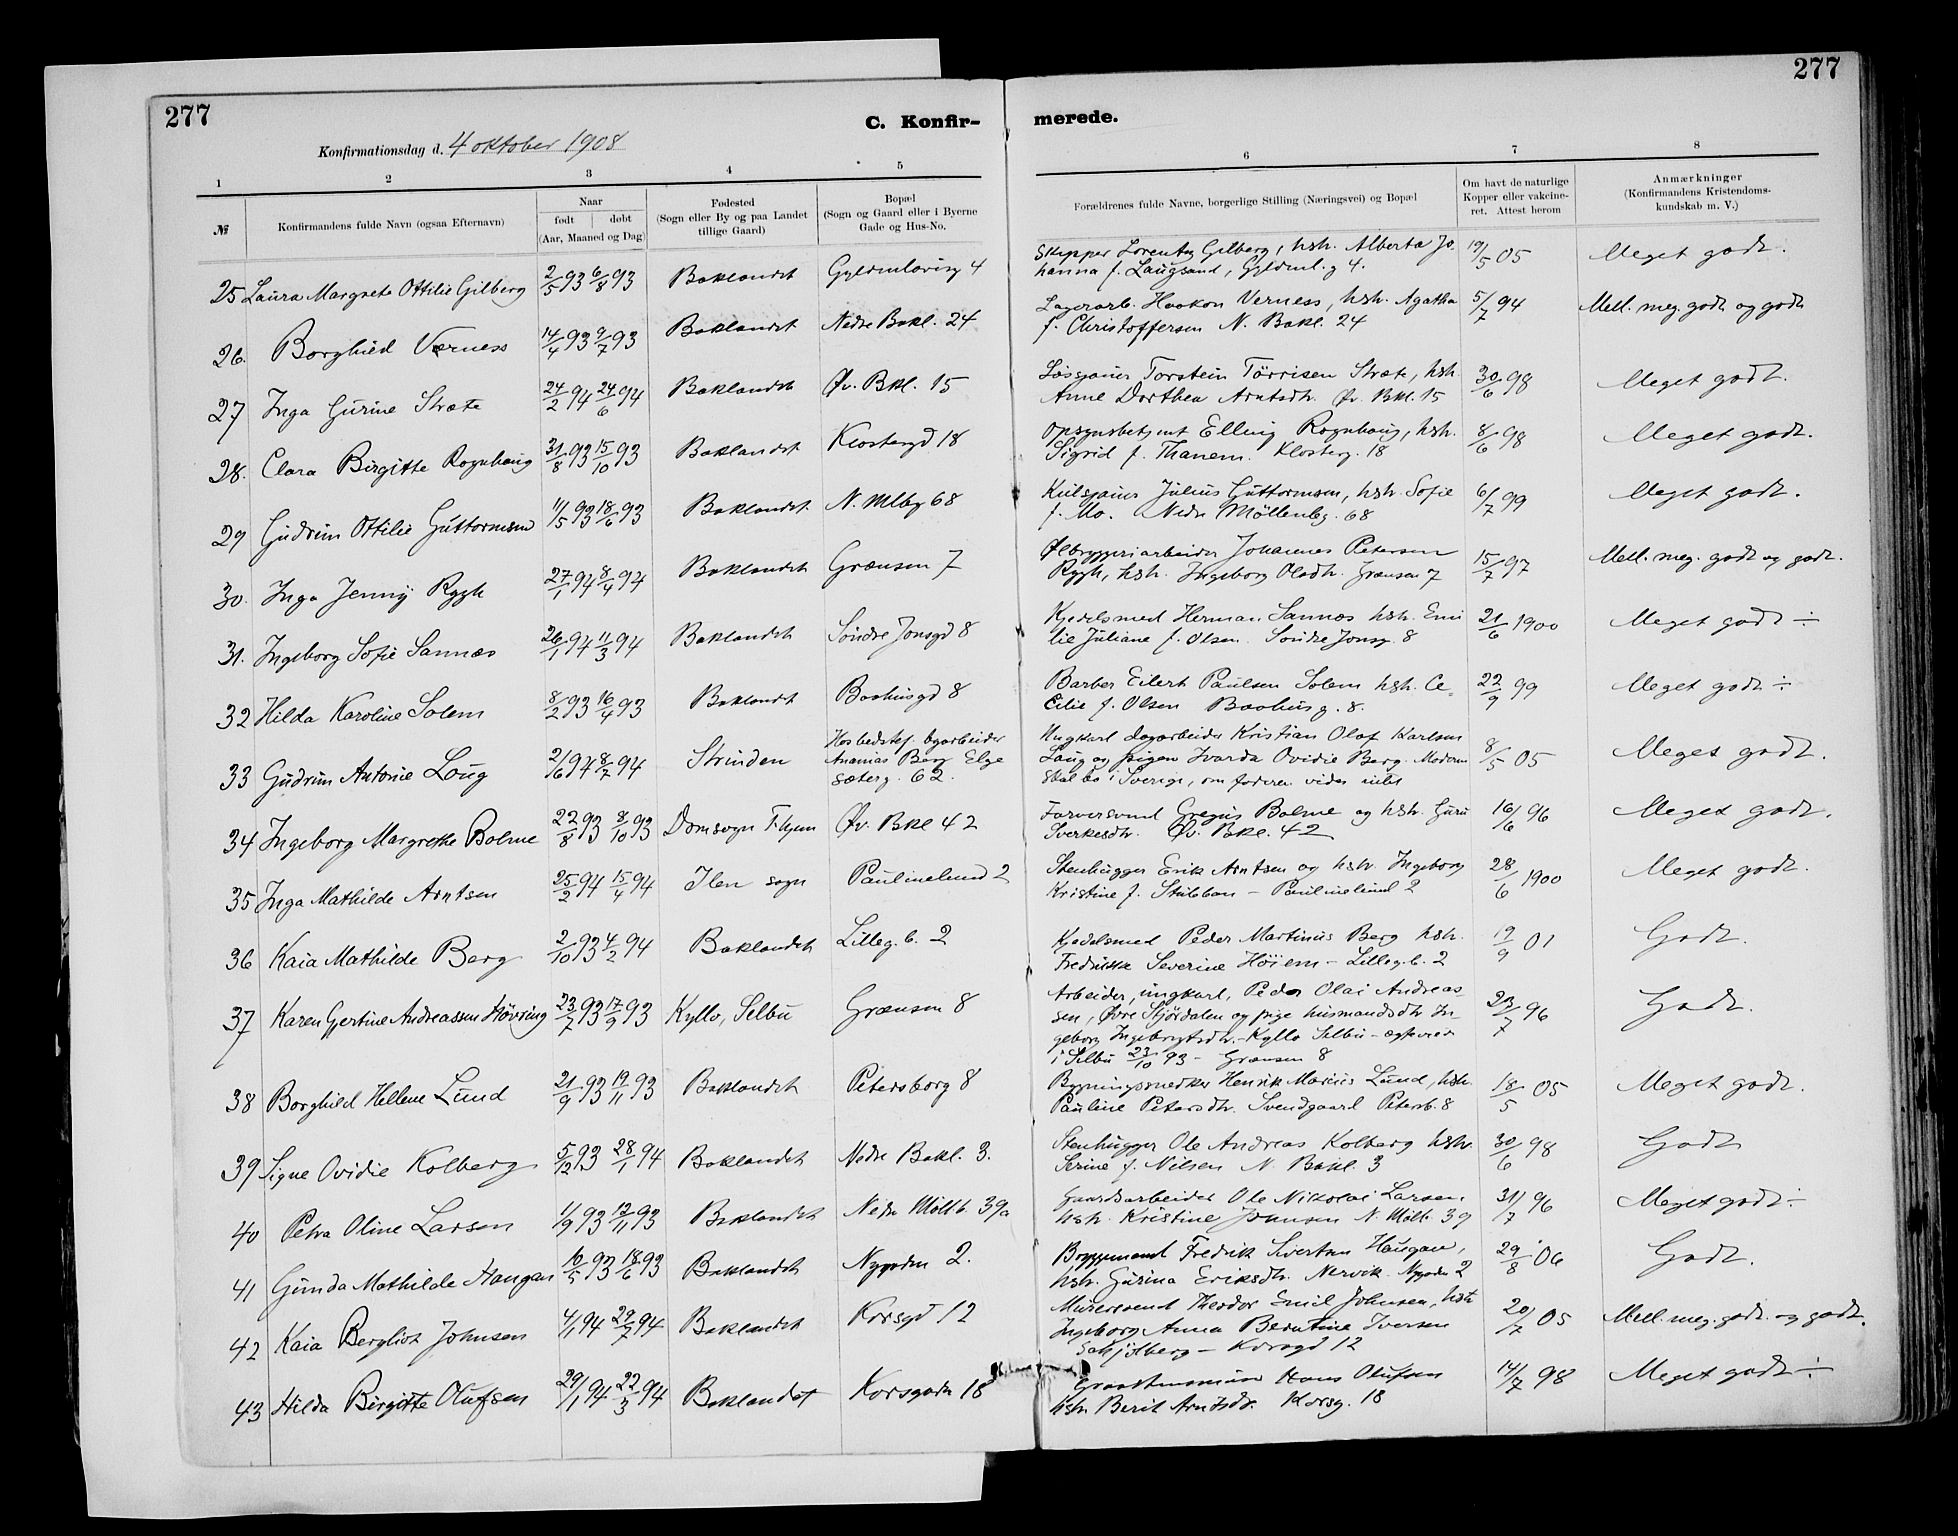 277
277
C. Konfir-
merede.
Konfirmationsdag d. 4 oktober 1908
1 2 3 4 5 6 7 8
№ Konfirmandens fulde Navn (ogsaa Efternavn) Naar født døbt (Aar, Maaned og Dag) Fødested (Sogn eller By og paa Landet tillige Gaard) Bopæl (Sogn og Gaard eller i Byerne Gade og Hus-No. Forældrenes fulde Navne, borgerlige Stilling (Næringsvei) og Bopæl Om havt de naturlige Kopper eller vakcineret. Attest herom Anmærkninger (Konfirmandens Kristendomskundskab m. V.)
25 Laura Margrete Ottilie Gilberg 2/5 93 6/8 93 Baklandet 4 Skipper Gilberg, hstr. Alberta Jo-
hanna f. Laugsand, 4. 19/5 05 Meget godt.
26. Borghild Værness 14/4 93 9/7 93 Baklandet Nedre Bakl. 24 Lagerarb. Haakon Verness, hstr. Agatha
f. Christoffersen N. Bakl. 24 5/7 94 Mell. meg. godt og godt
27 Inga Gurine Stræte 24/2 94 24/6 94 Baklandet Øv. Bkl. 15 Torstein Törrisen Stræte, hstr.
Anne Dorthea Arntsdtr. Øv. Bkl. 15 30/6 98 Meget godt.
28. Clara Birgitte Rognhaug 31/8 93 15/10 93 Baklandet Klostergd 18 Opsynsbetjent Elling Rognhaug, hstr.
Sigrid f. Thanem. Klosterg. 18 8/6 98 Meget godt.
29 Gudrun Ottilie Guttormsen 11/5 93 18/6 93 Baklandet N. Mlbg 68 Julius Guttormsen, hstr. Sofie
f. Mo. Nedre Möllenbg. 68 6/7 99 Meget godt.
30. Inga Jenny Rygh 27/1 94 8/4 94 Baklandet Grænsen 7 Ølbryggeriarbeider Johannes Petersen
Rygh, hstr. Ingeborg Olsdtr. Grænsen 7 15/7 97 Mell. meg. godt og godt.
31. Ingeborg Sofie Sannæs 26/1 94 11/3 94 Baklandet Söndre Jonsgd 8 Kjedelsmed Herman Sannæs hstr. Emi
lie Juliane f. Olsen Söndre Jonsg. 8 21/6 1900 Meget godt ÷
32 Hilda Karoline Solem 8/2 93 16/4 93 Baklandet Baahusgd 8 Barber Eilert Paulsen Solem hstr. Ce-
cilie f. Olsen Baahusg. 8. 22/9 99 Meget godt ÷
33 Gudrun Antonie Loug 21/6 94 8/7 94 Strinden Hos bedstef. byarbeider
Ananias Berg Elge
sæterg. 62. Ungkarl dagarbeider Kristian Olaf Karlsen
Laug og pigen Ivarda Ovidie Berg. Moderen
skal bo i Sverige, om faderen vides intet 8/5 05 Meget godt.
34 Ingeborg Margrethe Bolme 22/8 93 8/10 93 Domsogn T.hjem Øv. Bkl 42 Farversvend Bolme og hstr. Guru
Sverkesdtr. Øv. Bkl. 42 16/6 96 Meget godt.
35 Inga Mathilde Arntsen 25/2 94 15/4 94 Ilen sogn Paulinelund 2 Stenhugger Erik Arntsen og hstr. Ingeborg
Kristine f. Stubban - Paulinelund 2 28/6 1900 Meget godt.
36 Kaia Mathilde Berg 2/10 93 4/2 94 Baklandet Lilleg. b. 2 Kjedelsmed Peder Martinus Berg hstr.
Fredrikke Severine Höiem - Lilleg. b. 2 19/9 01 Godt.
37 Karen Gjertine Andreassen Hövring 23/7 93 17/9 93 Kyllo, Selbu Grænsen 8 Arbeider, ungkarl, Peder Olai Andreas-
sen, Øvre Stjördalen og pige husmandsdtr. In-
geborg Ingebrigtsdtr. - Kyllo Selbu -
i Selbu 23/10 93 - Grænsen 8 23/7 96 Godt.
38 Borghild Hellene Lund 21/9 93 19/11 93 Baklandet Petersborg 8 Bygningssnedker Henrik Marius Lund, hstr.
Pauline Petersdtr. Svendgaard Petersb. 8 18/5 05 Meget godt.
39 Signe Ovidie Kolberg 5/12 93 28/1 94 Baklandet Nedre Bakl. 3. Stenhugger Ole Andreas Kolberg hstr.
Serine f. Nilsen N. Bakl. 3 30/6 98 Godt
40 Petra Oline Larsen 11/9 93 12/11 93 Baklandet Nedre Möllb. 39a Gaardsarbeider Ole Nikolai Larsen,
hstr. Kristine Johnsen N. Möllb. 39 31/7 96 Meget godt ÷
41 Gunda Mathilde Haugan 10/5 93 18/6 93 Baklandet Nygaden 2. Fredrik Sivertsen Haugan,
hstr. Gurina Eriksdtr. Nervik. Nygaden 2 29/8 06 Godt.
42 Kaia Bergliot Johnsen 4/1 94 29/7 94 Baklandet Korsgd 12 Murersvend Theodor Emil Johnsen, hstr
Ingeborg Anna Berntine Iversen
Schjölberg - Korsgd 12 20/7 05 Mell. meg. godt og godt.
43 Hilda Birgitte Olufsen 29/1 94 22/3 94 Baklandet Korsgaden 18 Hans Olufsen
hstr. Berit Arntsdtr. Korsg. 18 14/7 98 Meget godt ÷